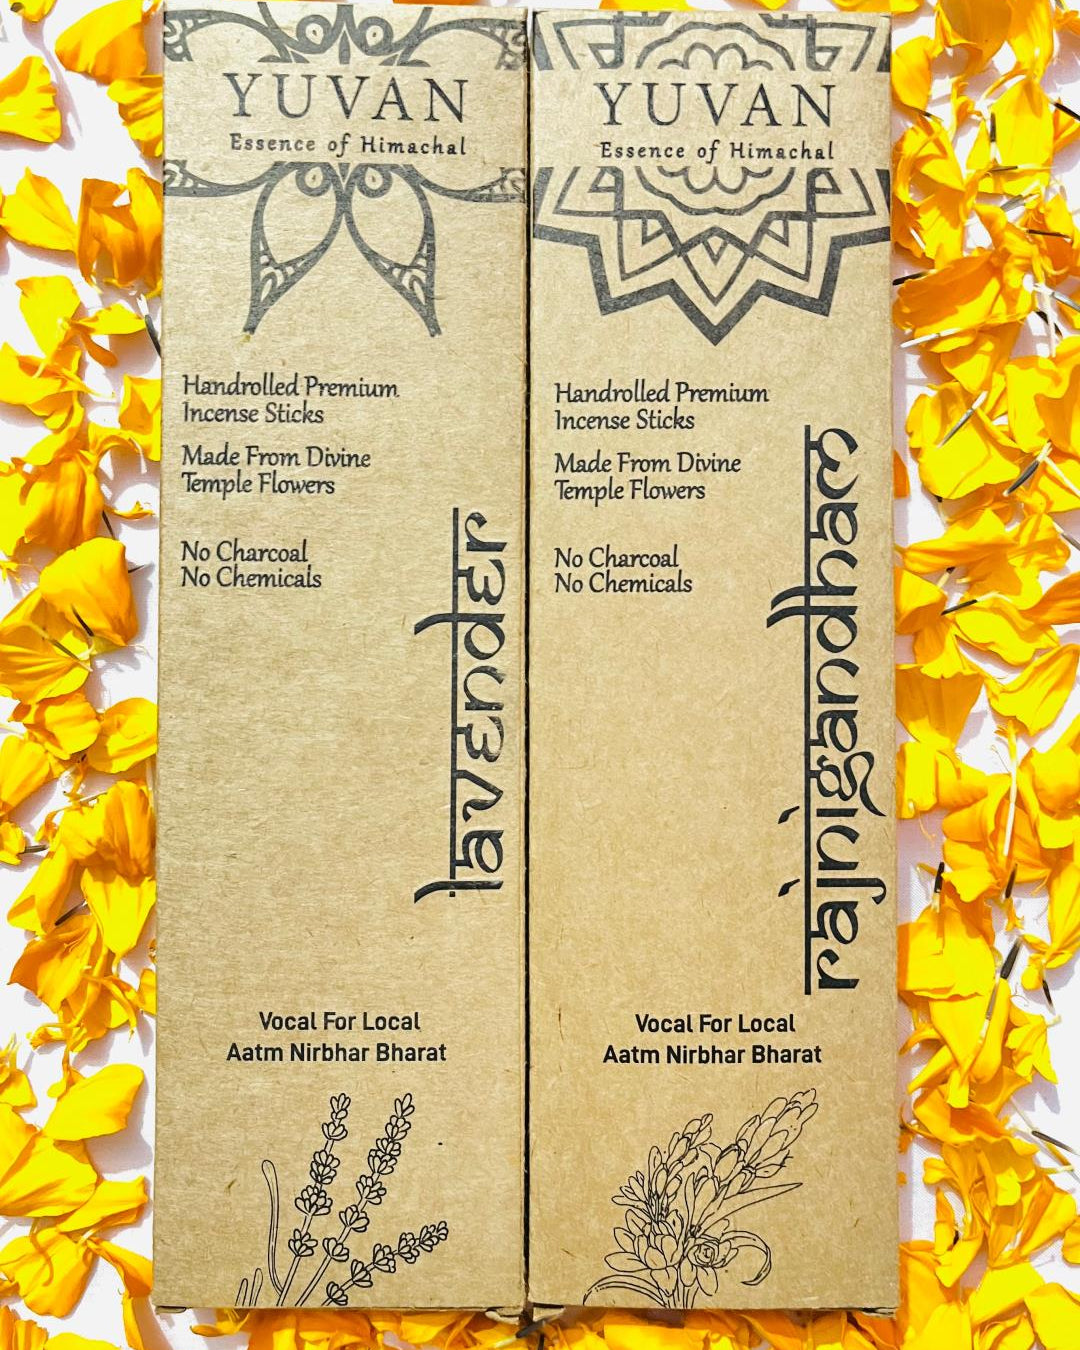 YUVAN
Essence of Himachal
Handrolled Premium
Incense Sticks
Made From Divine
Temple Flowers
No Charcoal
No Chemicals
lavender
Vocal For Local
Aatm Nirbhar Bharat
YUVAN
Essence of Himachal
Handrolled Premium
Incense Sticks
Made From Divine
Temple Flowers
No Charcoal
No Chemicals
rajnigandham
Vocal For Local
Aatm Nirbhar Bharat